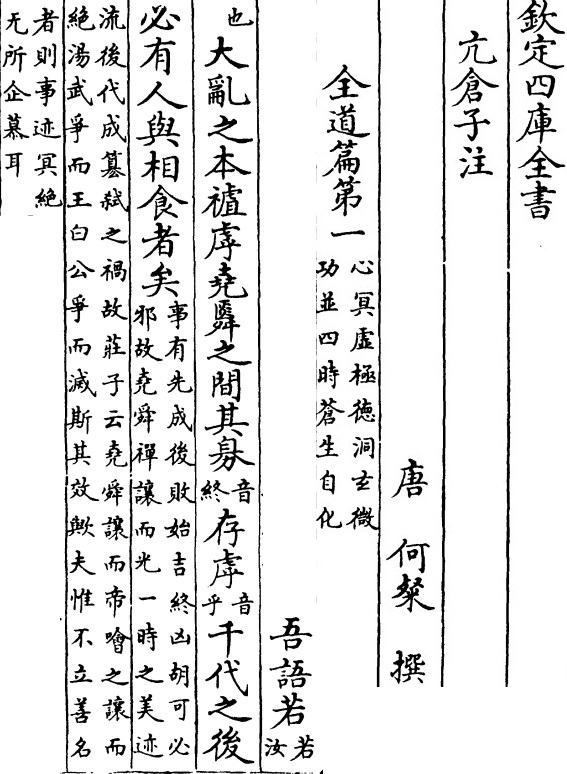 欽定四庫全書
亢倉子注
唐 何粲 撰
全道篇第一
心冥虛極德洞玄微
功並四時蒼生自化
吾語若
若
汝
也
大亂之本虖堯舜之間其
音
終
存虖
音
乎
千代之後
必有人與相食者矣
事有先成後敗始吉終凶胡可必
邪故堯舜禪讓而光一時之美迹
流後代成簒弑之禍故莊子云堯舜讓而帝噲之讓而
絕湯武爭而王白公爭而滅斯其效歟夫惟不立善名
者則事迹冥絕
无所企慕耳